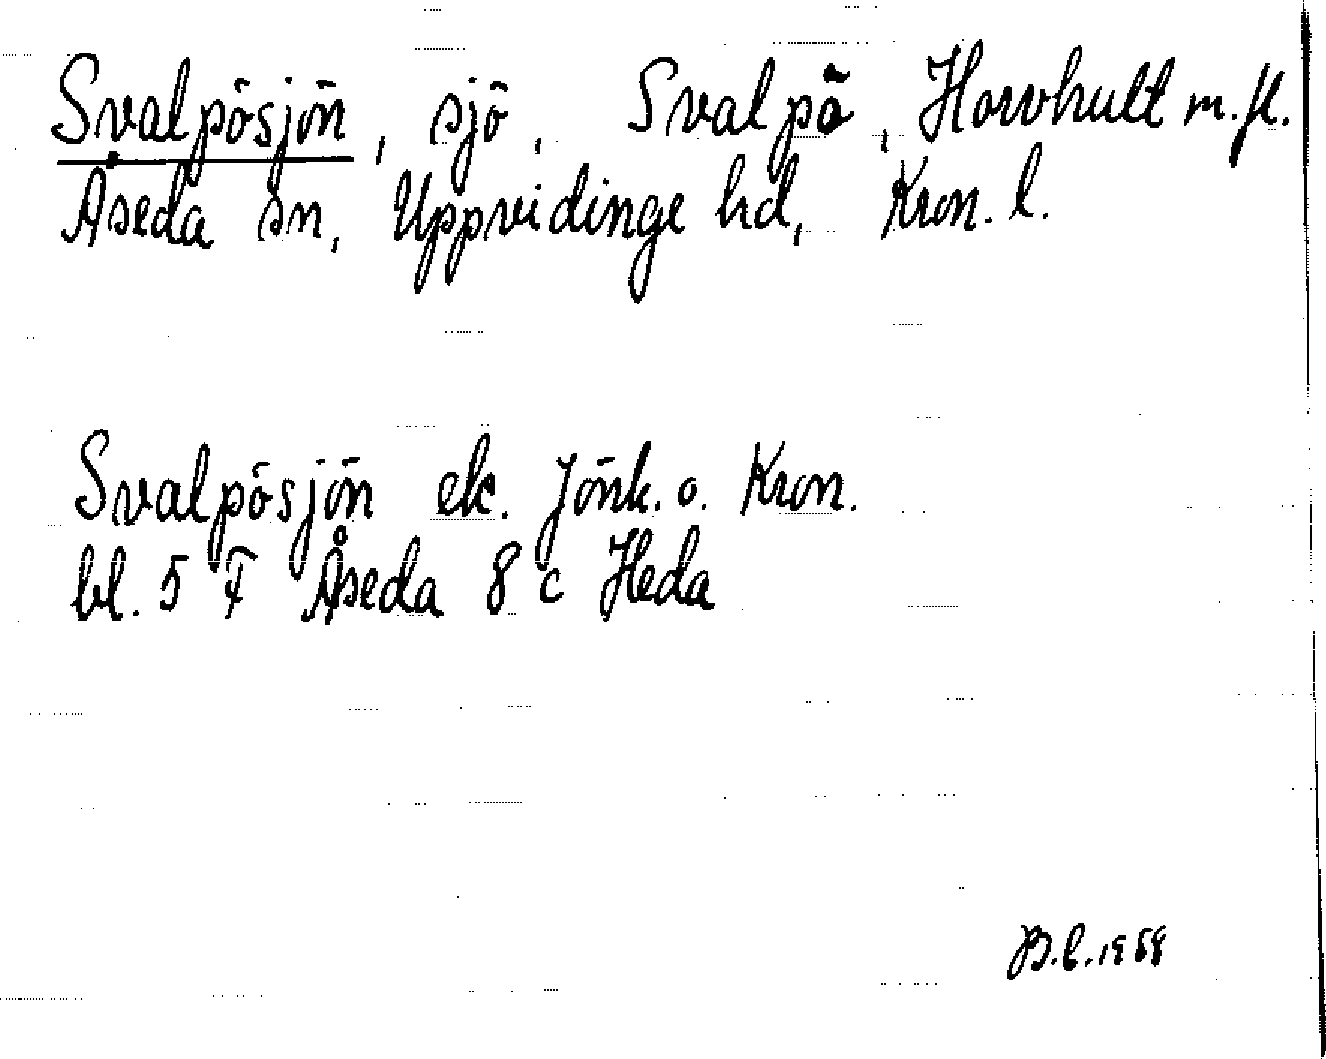 Svalpösjön, sjö, Svalpö, Horvhult m.fl.
Åseda sn, Uppvidinge hd, Kron. l.
Svalpösjön ek. Jönk. o. Kron.
bl. 5 F Åseda 8 c Heda